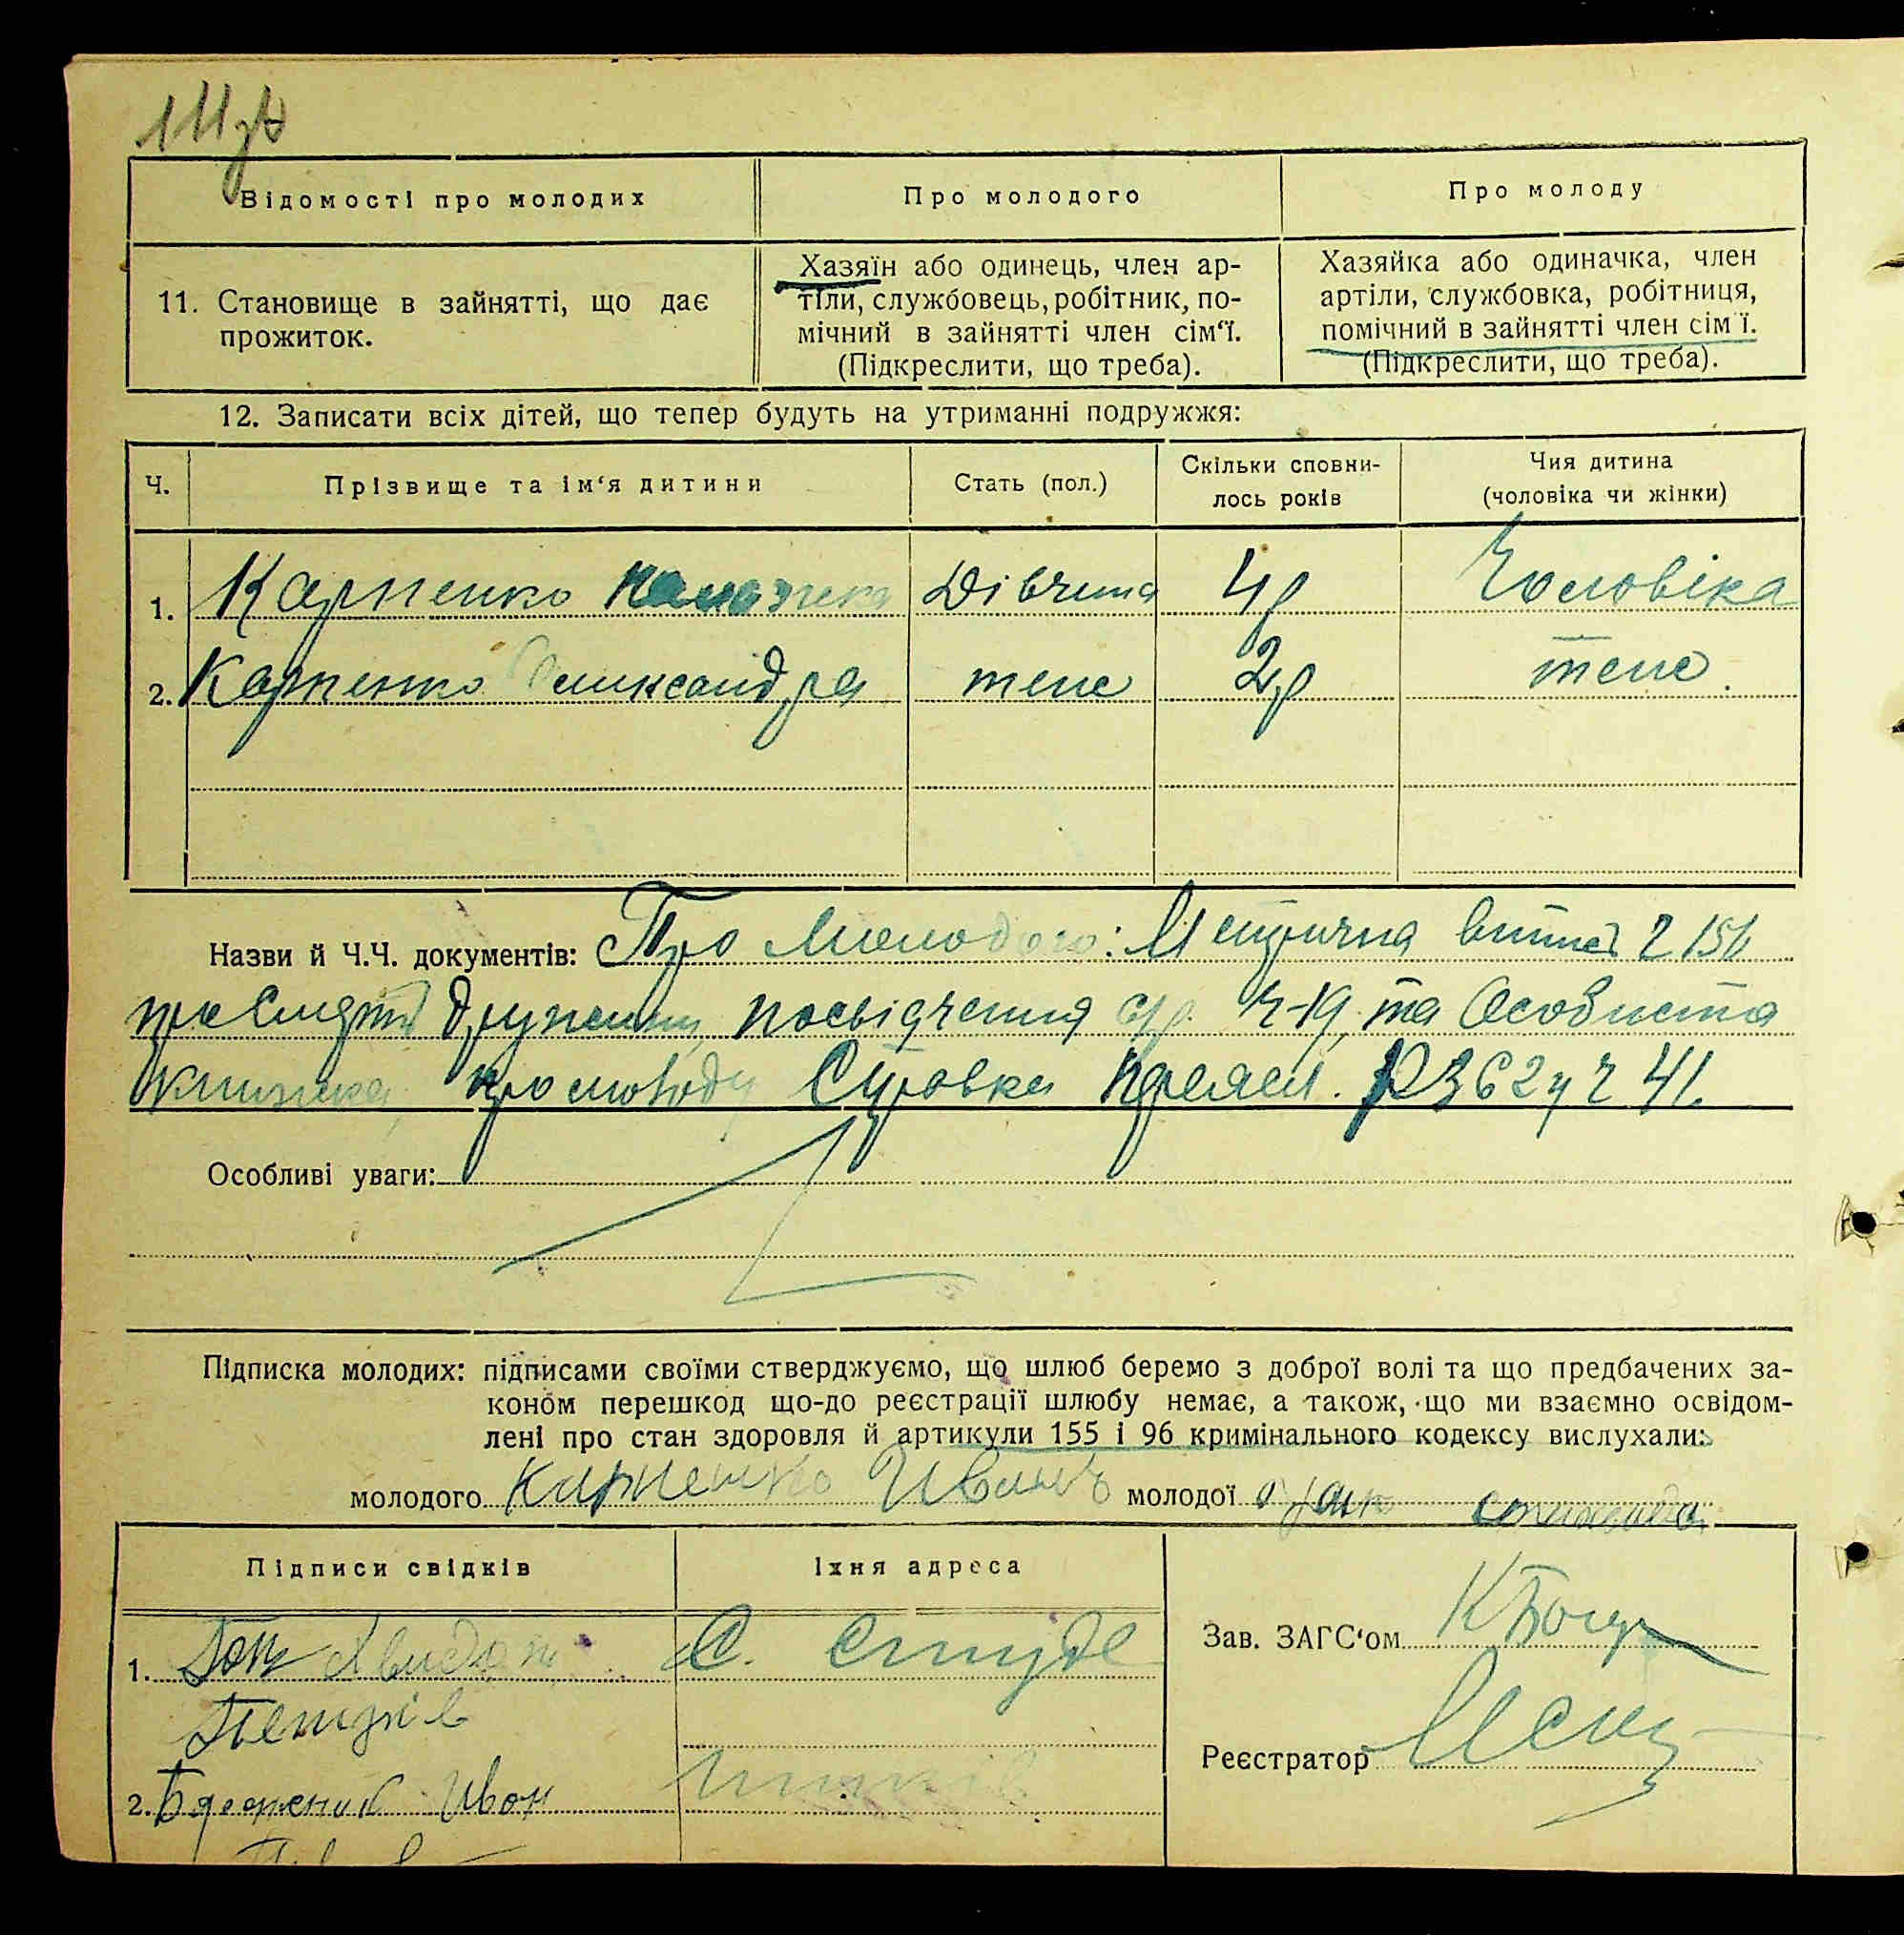 111
Відомості про молодих
Про молодого
Про молоду
11. Становище в зайнятті, що дає
прожиток.
Хазяїн або одинець, член ар-
тіли, службовець, робітник, по-
мічний в зайнятті член сім'ї.
(Підкреслити, що треба).
Хазяйка або одиначка, член
артіли, службовка, робітниця,
помічний в зайнятті член сім'ї.
(Підкреслити, що треба).
12. Записати всіх дітей, що тепер будуть на утриманні подружжя:
Ч.
Прізвище та ім'я дитини
Стать (пол.)
Скільки сповни-
лось років
Чия дитина
(чоловіка чи жінки)
1. Карпенко Дівчина 4р Чоловіка
2. Карпенко Олександра теж 2р теж
Назви й Ч.Ч. документів: Про Молодого: Метрична 151
про смерть Дружини, посвідчення ср. Ч-19, та Особиста
книжка, про молоду Справка 41.
Особливі уваги:
Підписка молодих: підписами своїми стверджуємо, що шлюб беремо з доброї волі та що предбачених за-
коном перешкод що-до реєстрації шлюбу немає, а також, що ми взаємно освідом-
лені про стан здоровля й артикули 155 і 96 кримінального кодексу вислухали:
молодого Карпенко Иванъ молодої
Підписи свідків
Їхня адреса
1. С.
Петрів
2. Иван
Зав. ЗАГС'ом
Реєстратор